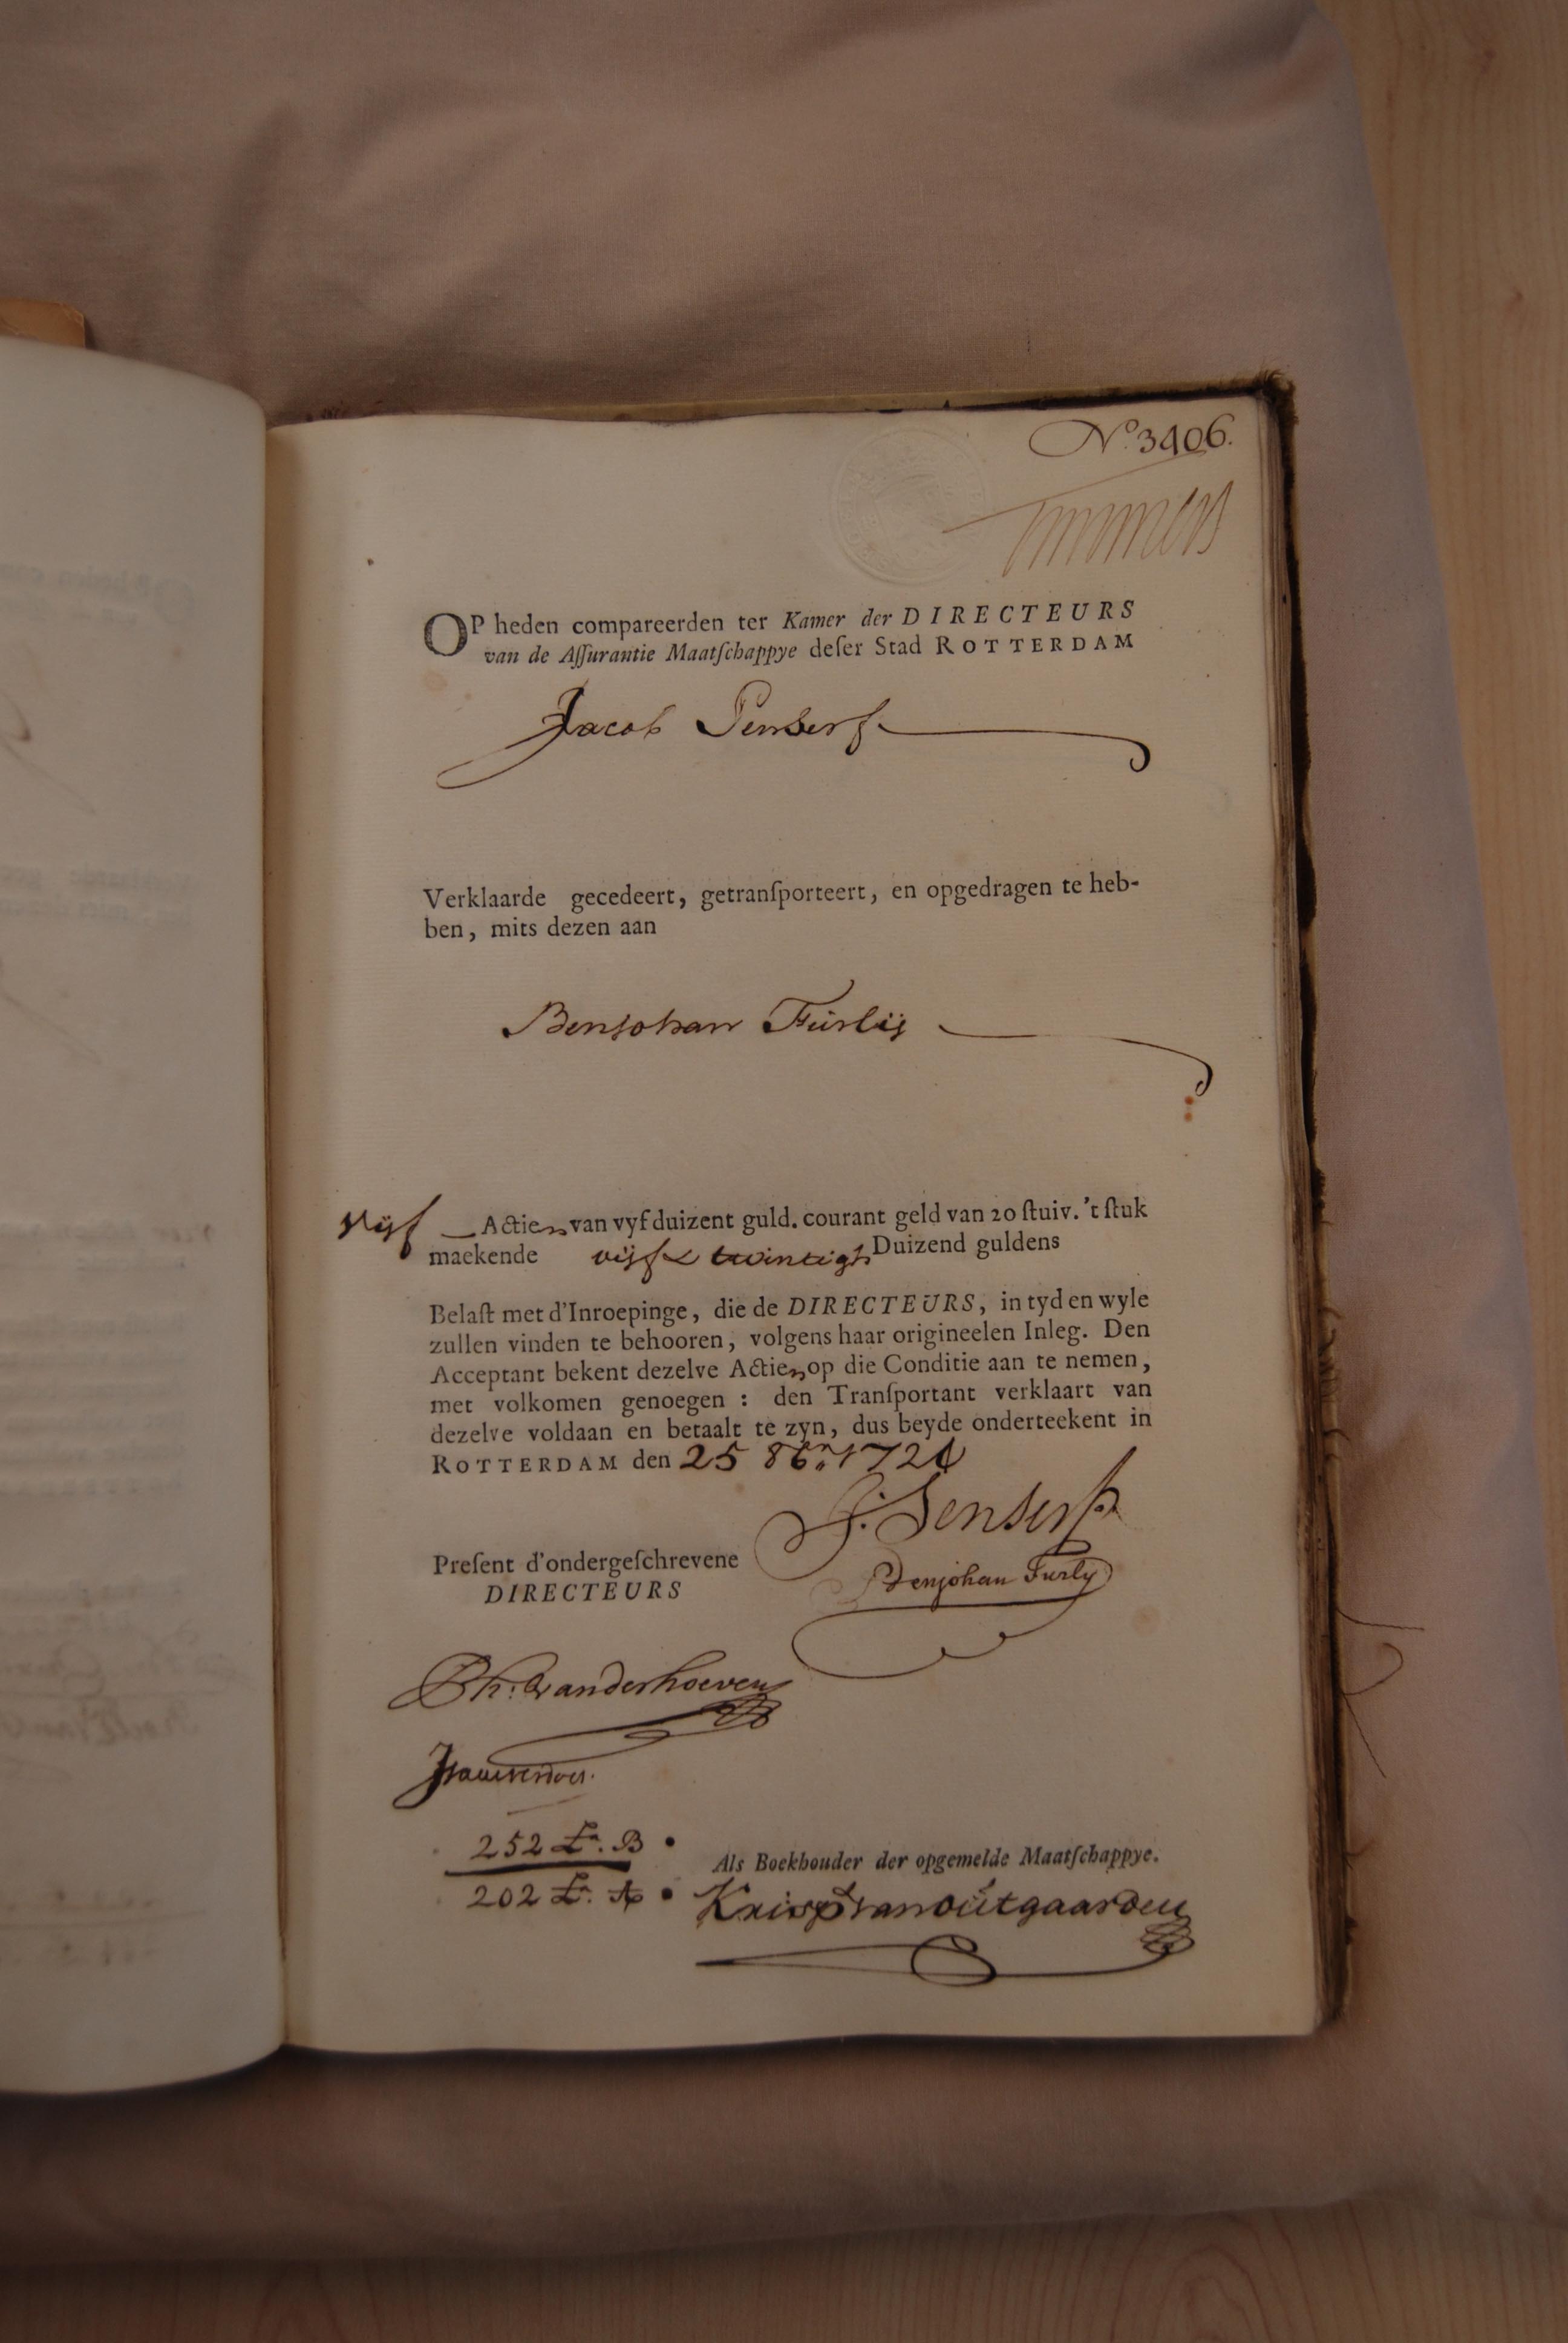 No. 3406.
Timmers
OP heden compareerden ter Kamer der DIRECTEURS
van de Aſſurantie Maatſchappye deſer Stad ROTTERDAM
Jacob Senserf
Verklaarde gecedeert, getranſporteert, en opgedragen te heb-
ben, mits dezen aan
Benjohan Furlij
Vijf Actien van vyf duizent guld. courant geld van 20 ſtuiv. 't ſtuk
maekende vijf & twintigh Duizend guldens
Belaſt met d'Inroepinge, die de DIRECTEURS, in tyd en wyle
zullen vinden te behooren, volgens haar origineelen Inleg. Den
Acceptant bekent dezelve Actien op die Conditie aan te nemen,
met volkomen genoegen : den Tranſportant verklaart van
dezelve voldaan en betaalt te zyn, dus beyde onderteekent in
ROTTERDAM den 25 8br. 1721
J: Senserf
Benjohan Furly
Preſent d'ondergeſchrevene
DIRECTEURS
Ph: vanderhoeven
252 La. B
202 La. A
Als Boekhouder der opgemelde Maatſchappye.
Krisp van outgaarden